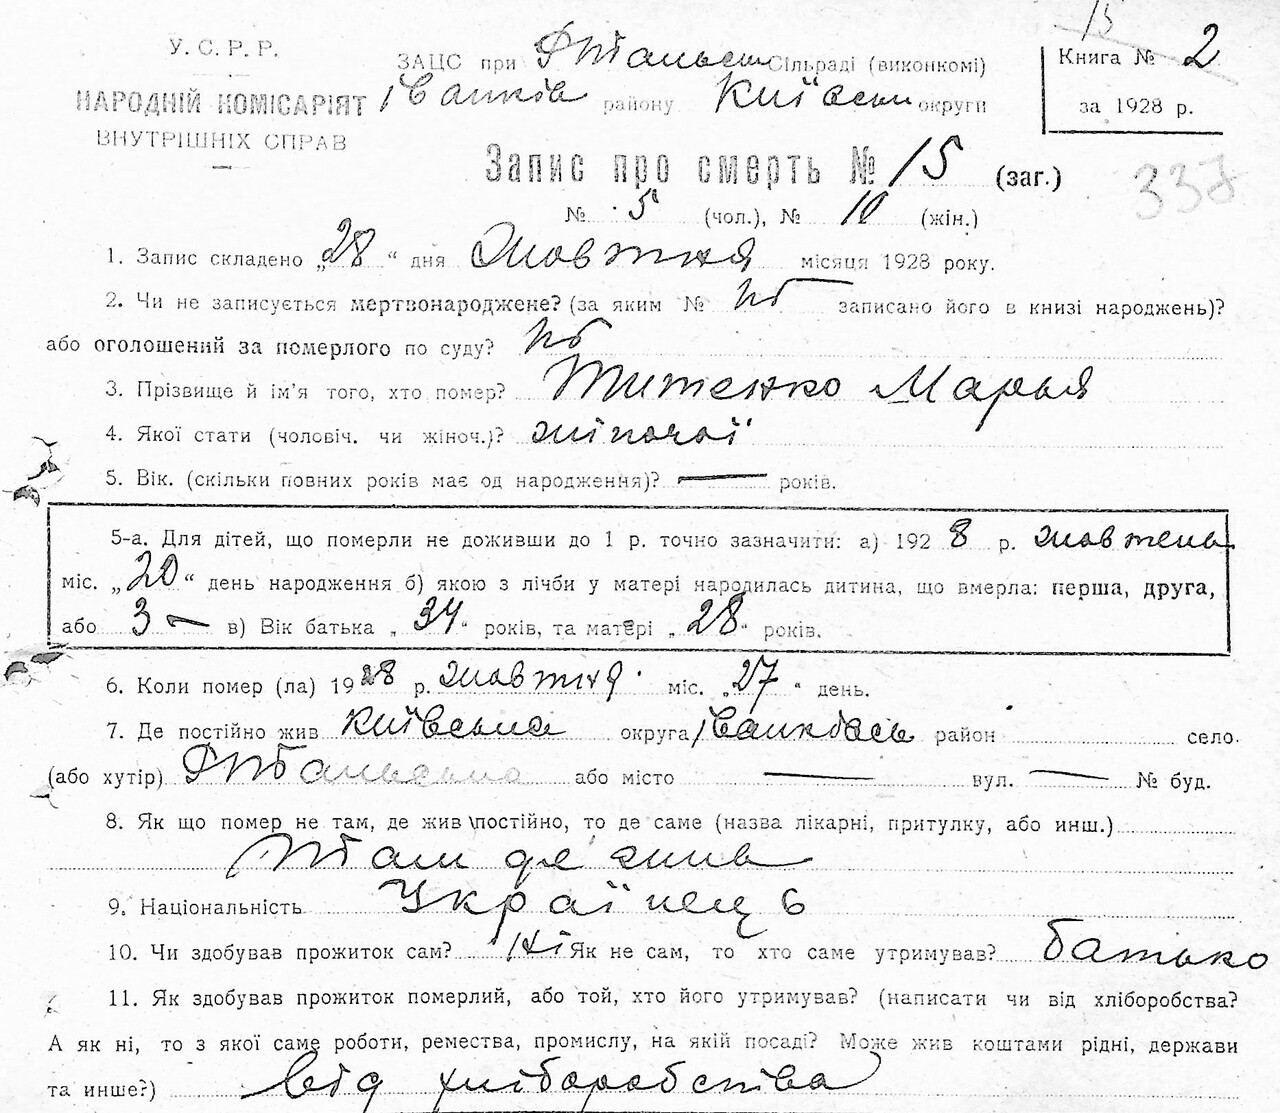 15
У. С. Р. Р.
НАРОДНІЙ КОМІСАРІЯТ
ВНУТРІШНІХ СПРАВ
ЗАЦС при Сільраді (виконкомі)
Іванків району Київськ округи
Книга № 2
за 1928 р.
Запис про смерть № 15 (заг.)
337
№ 5 (чол.), № 10 (жін.)
1. Запис складено „28“ дня жовтня місяця 1928 року.
2. Чи не записується мертвонароджене? (за яким № записано його в книзі народжень)?
або оголошений за померлого по суду?
3. Прізвище й ім’я того, хто помер? Титенко Марья
4. Якої стати (чоловіч. чи жіноч.)? жіночої
5. Вік. (скільки повних років має од народження)? — років.
5-а. Для дітей, що померли не доживши до 1 р. точно зазначити: а) 1928 р. жовтень
міс. „20“ день народження б) якою з лічби у матері народилась дитина, що вмерла: перша, друга,
або 3 — в) Вік батька „34“ років, та матері „28“ років.
6. Коли помер (ла) 1928 р. жовтня міс. „27“ день.
7. Де постійно жив Київська округа район село
(або хутір) або місто — вул. — № буд.
8. Як що помер не там, де жив постійно, то де саме (назва лікарні, притулку, або инш.)
Там де жив
9. Національність Українець
10. Чи здобував прожиток сам? Ні Як не сам, то хто саме утримував? батько
11. Як здобував прожиток померлий, або той, хто його утримував? (написати чи від хліборобства?
А як ні, то з якої саме роботи, ремества, промислу, на якій посаді? Може жив коштами рідні, держави
та инше?) Від хліборобства